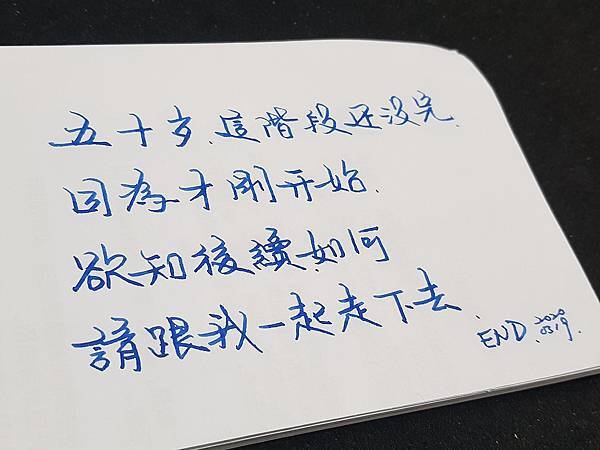 五十岁、這階段还沒完、
因為才剛开始、
欲知後續如何
請跟我一起走下去、
END. 2020 03.19.